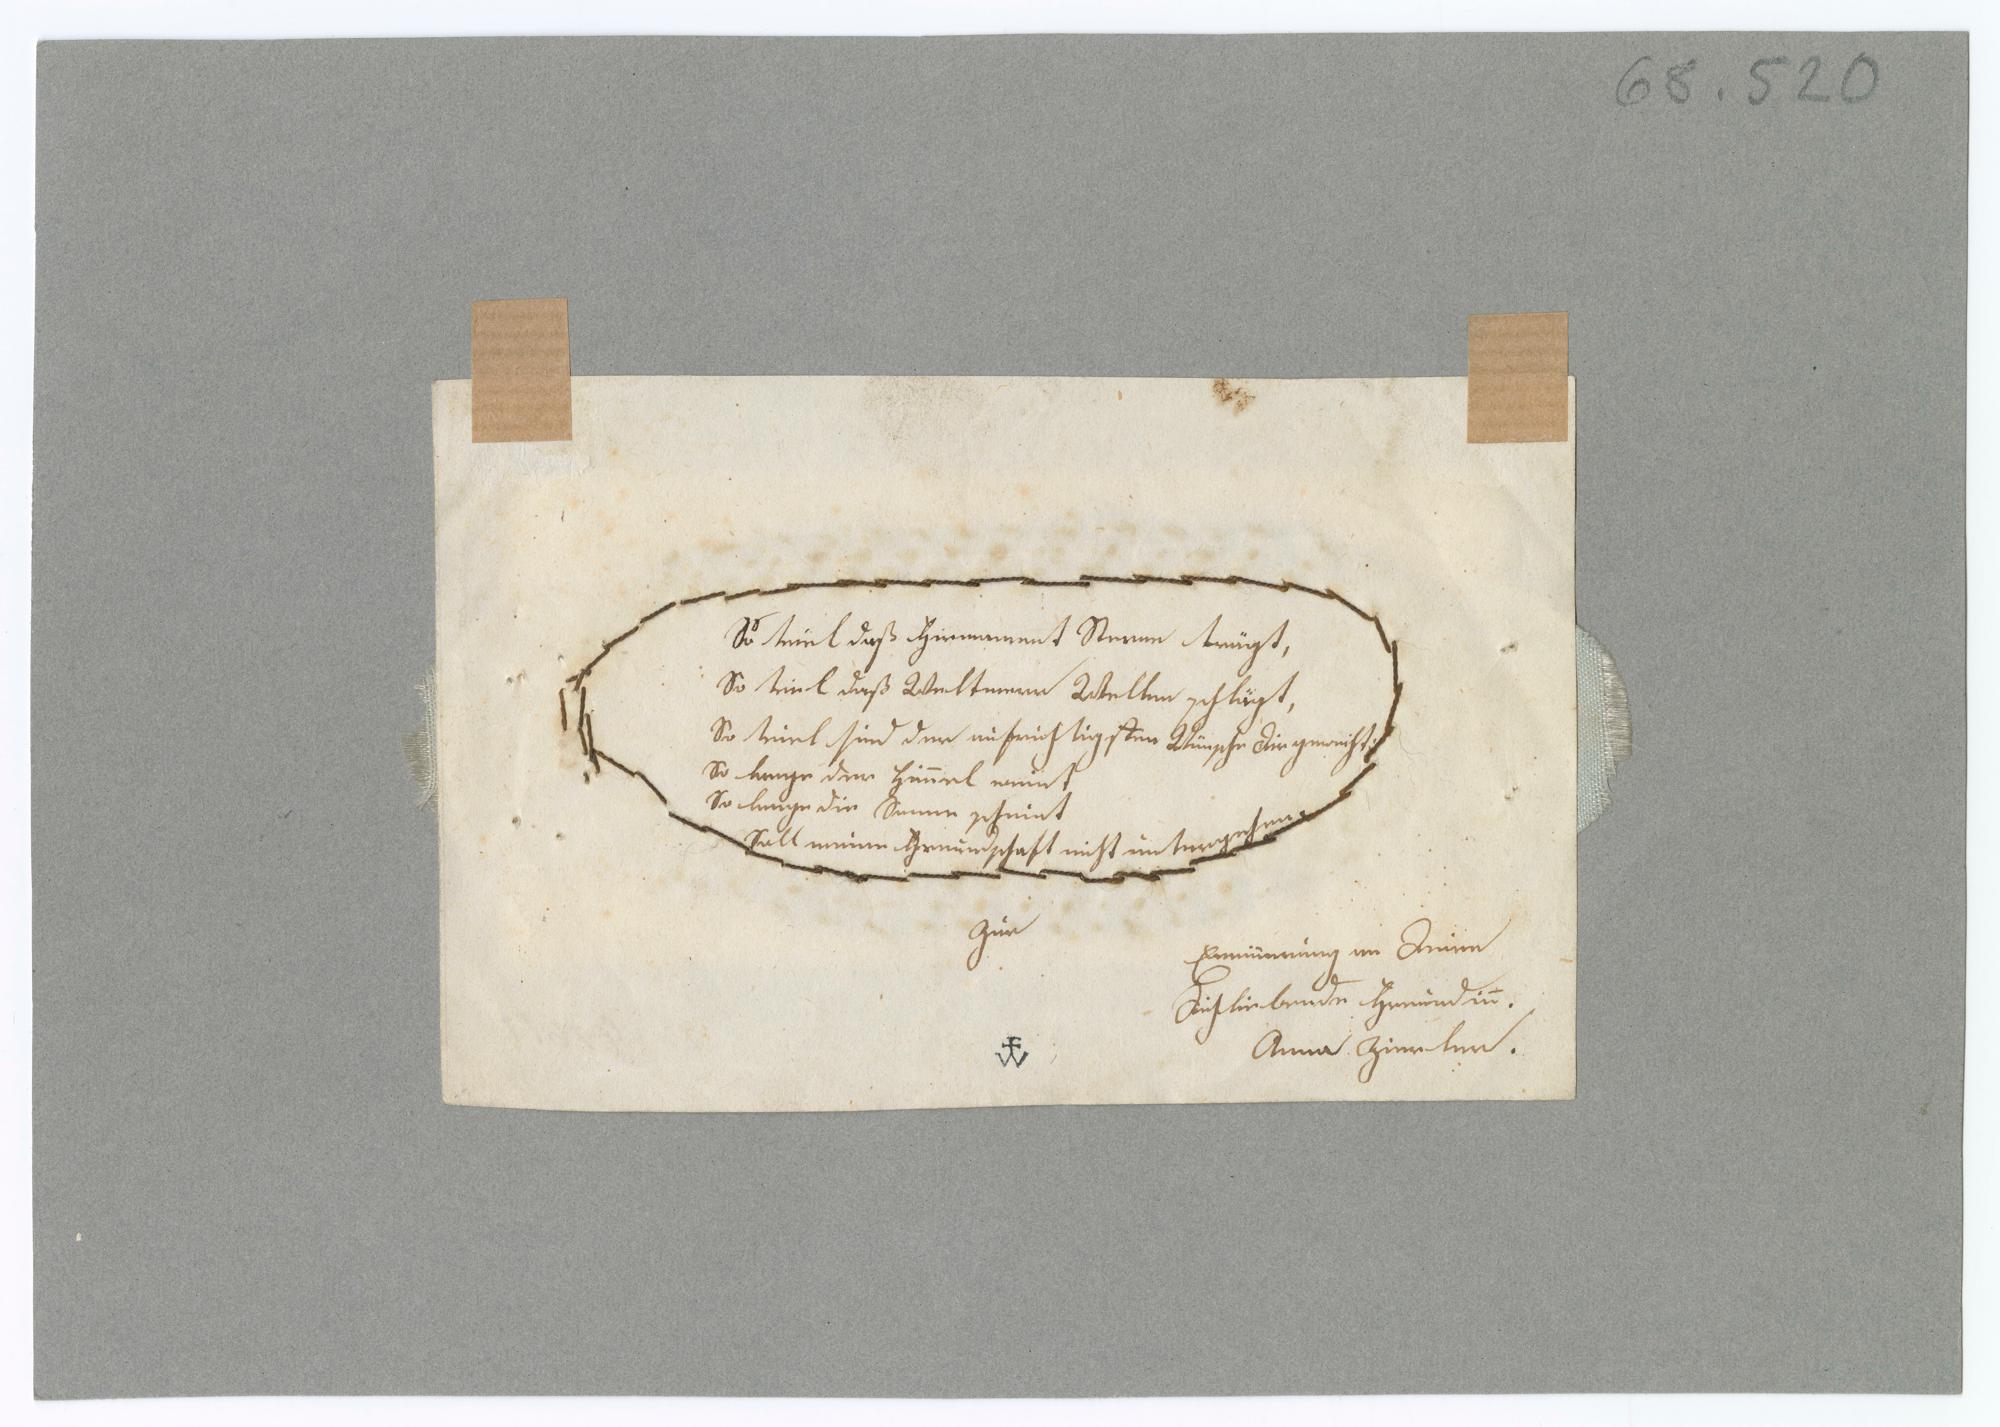 68.520
So viel daß Firmament Sterne trägt,
So viel daß Weltmeer Wellen schlägt,
So viel sind der aufrichtigsten Wünsche Dir geweiht:
So lange der Him̅el weint
So lange die Sonne scheint
Soll meine Freundschaft nicht untergehen.
Zur
Erin̅erung an Deine
Dich liebende Freundin̅.
Anna